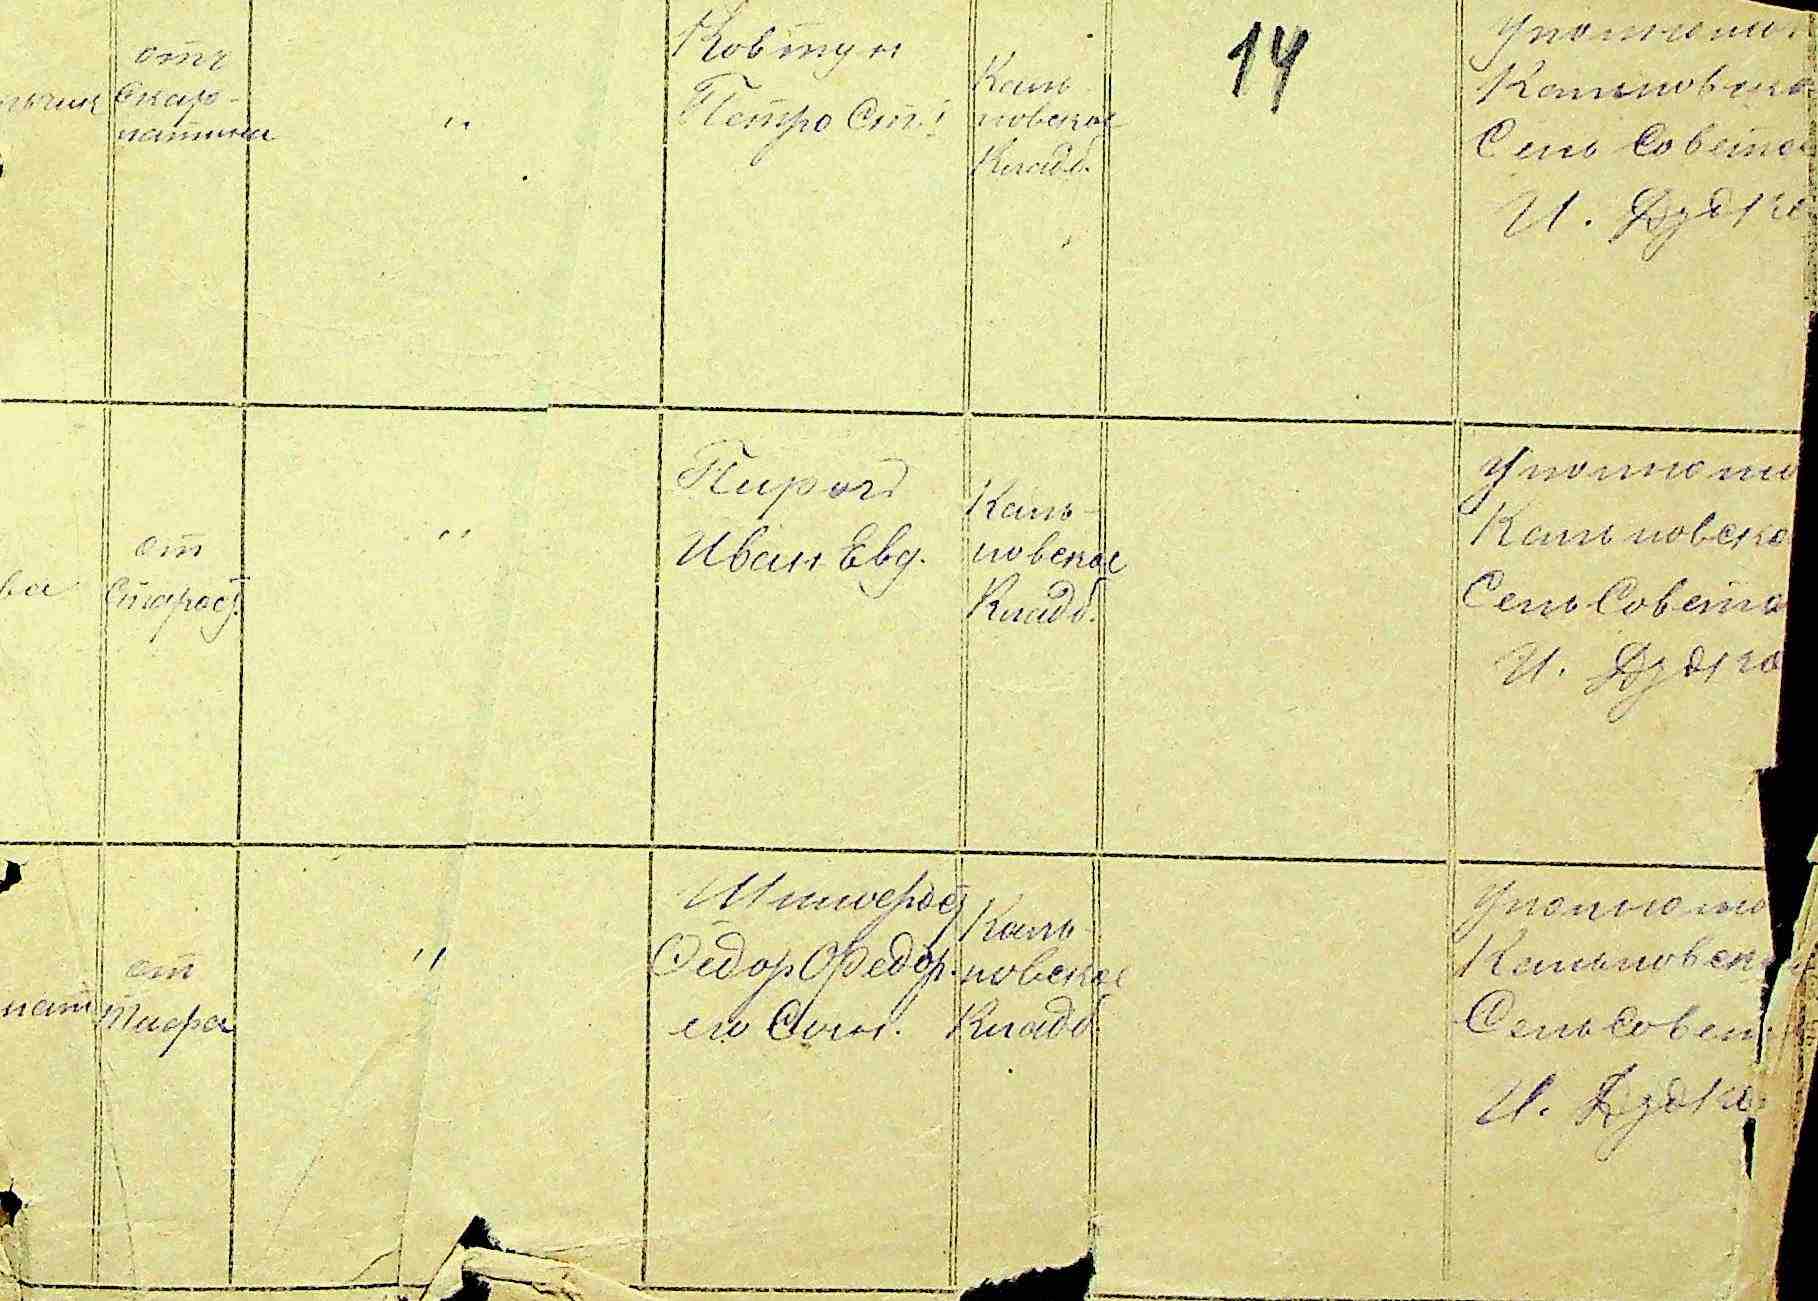 отъ
Скар-
латины
"
Ковтун
Петро Ст.
Каль
новское
Кладб.
14
Уполномоч
Кальновско
Сель Совета
И. Дудко
ва
от
Старост.
"
Пирог
Иван Евд.
Каль-
новское
Кладб.
Уполномо
Кальновско
Сель Совета
И. Дудко
от
Тифа
"
Федор Федор.
его Сын.
Каль-
новское
Кладб.
Уполномо
Кальновск
Сель Совет
И. Дудко